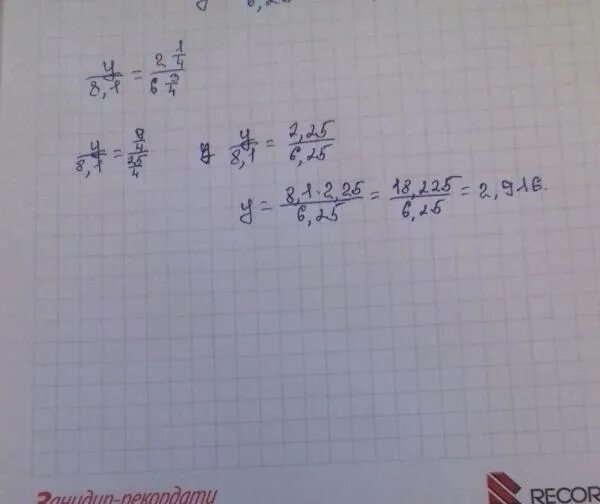 6,25
y/8,1 = 2 1/4 / 6 3/4
y/8,1 = 9/4 / 25/4 y y/8,1 = 2,25/6,25
y = 8,1·2,25/6,25 = 18,225/6,25 = 2,916.
Занидип-рекордати
RECOR